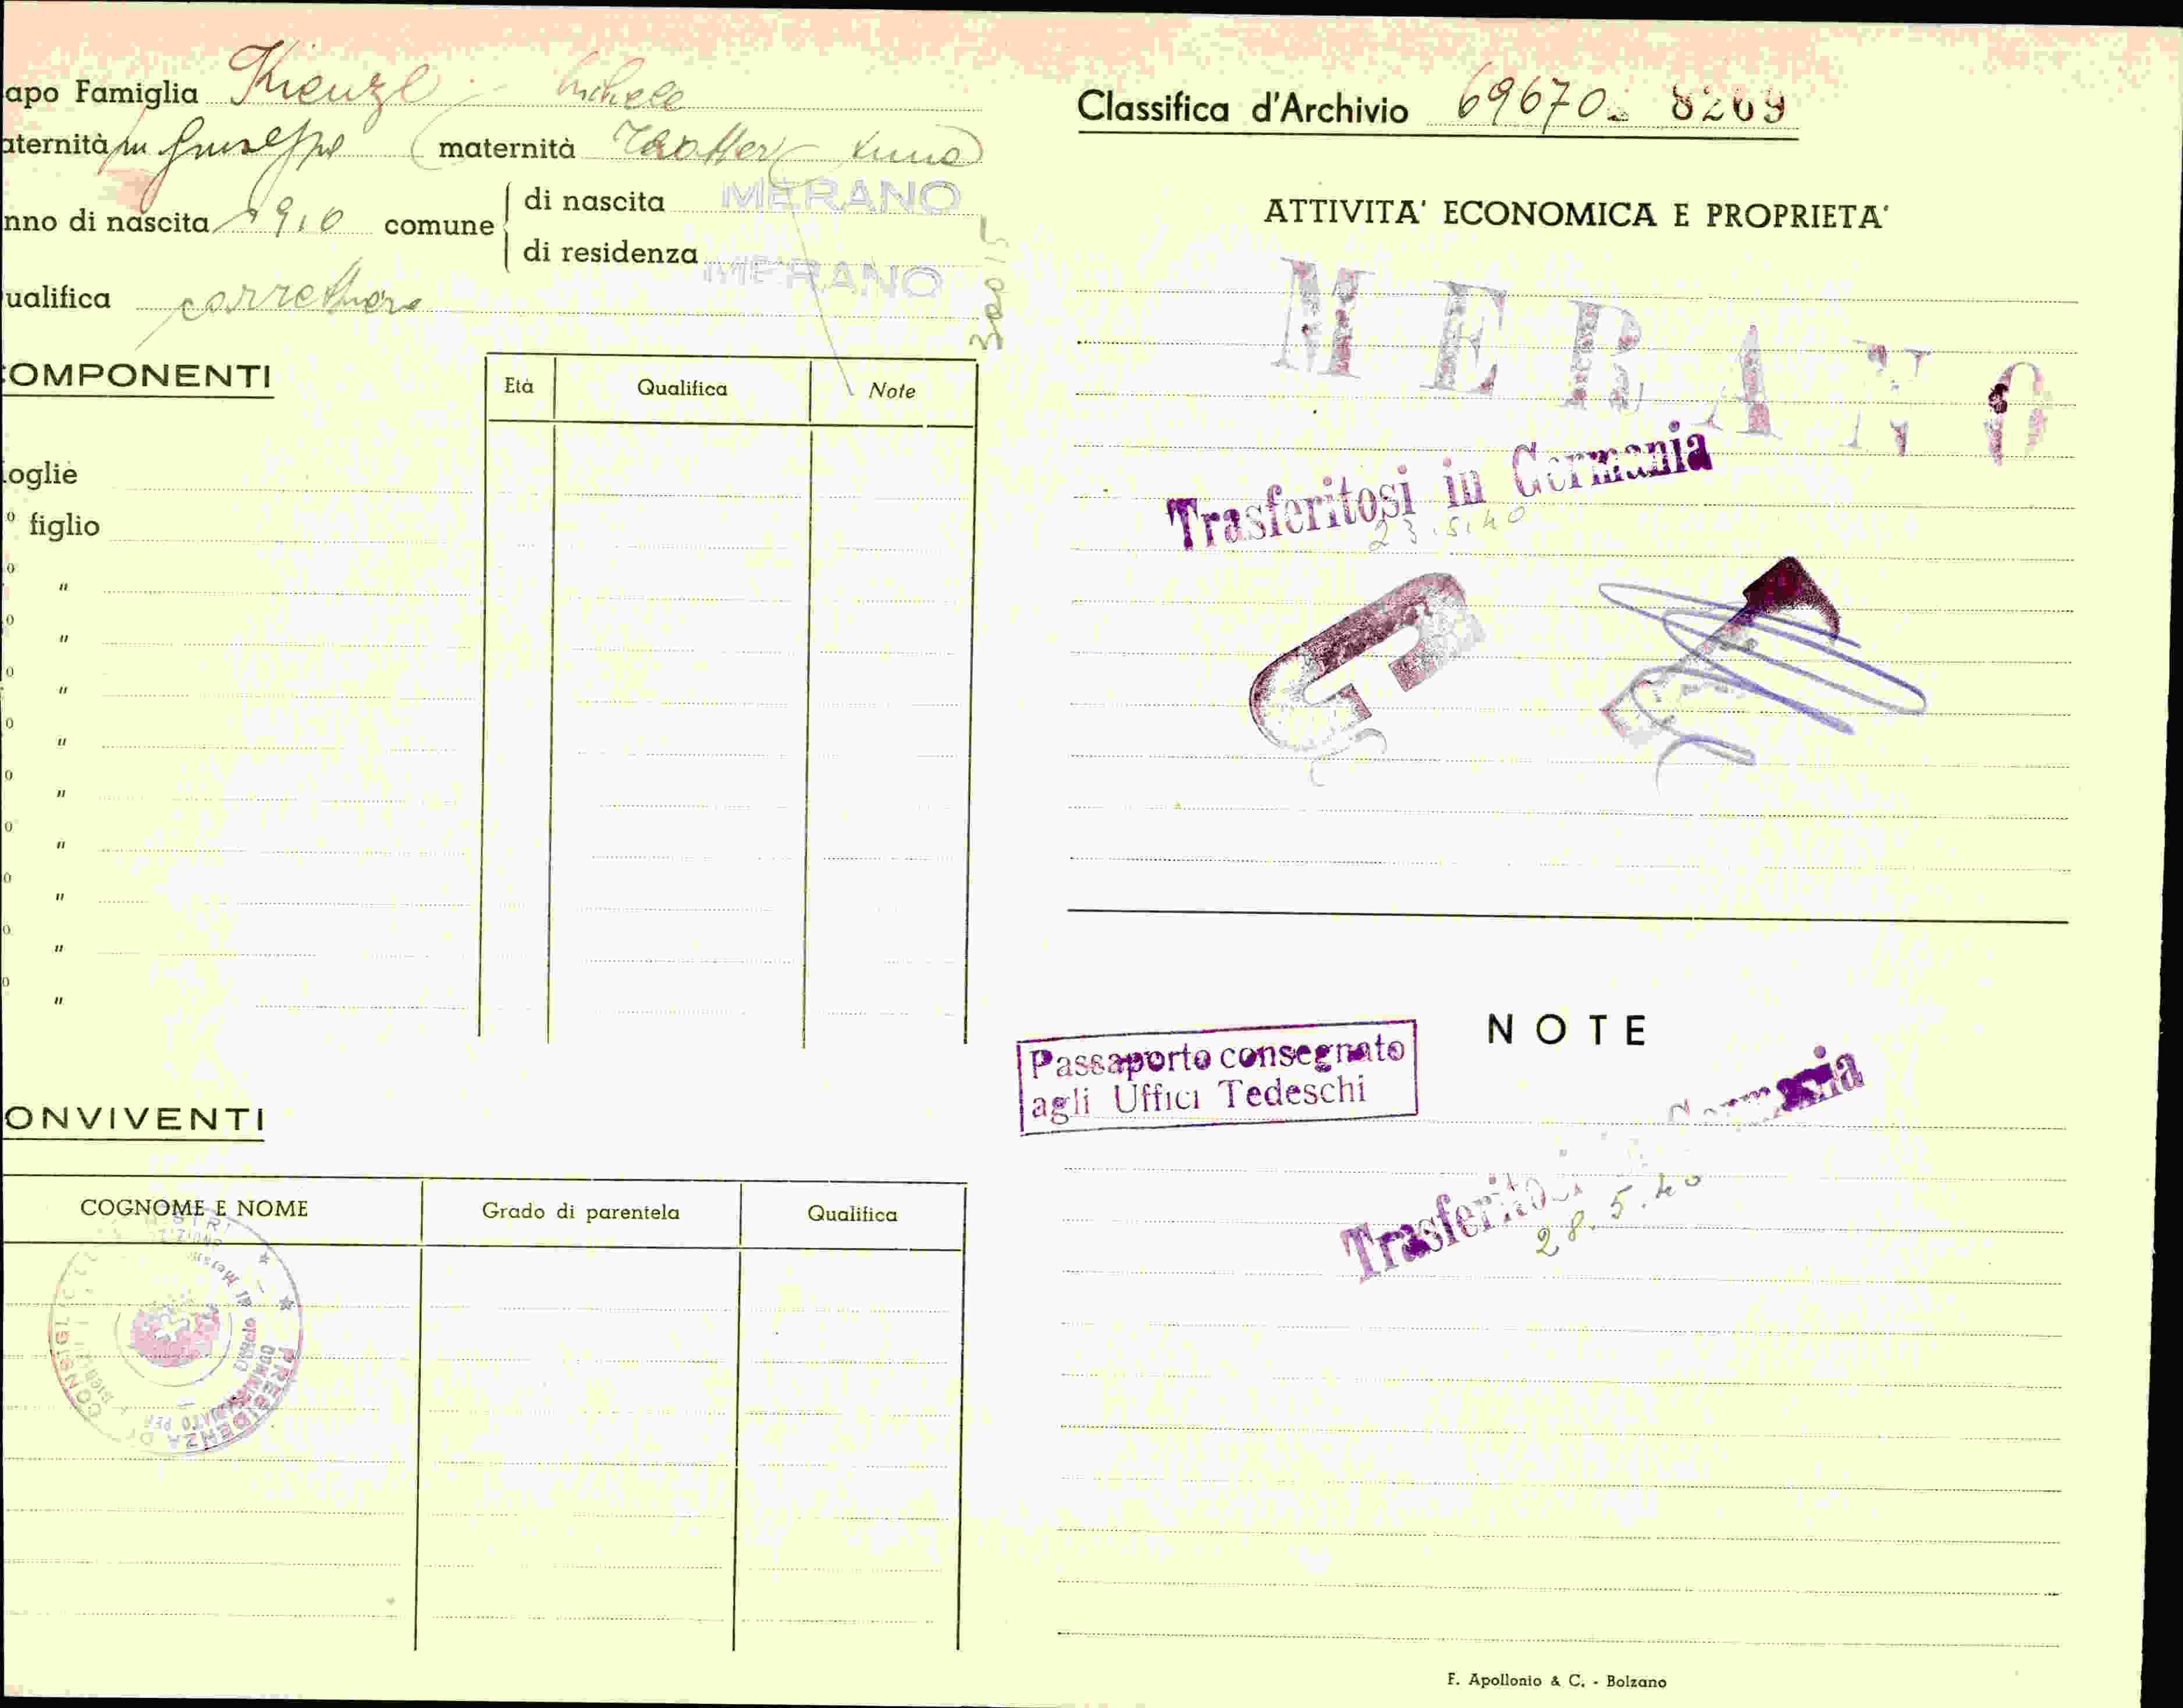 apo Famiglia Kienzl Michele
aternità fu Giuseppe (maternità Trotter Anna)
nno di nascita 1910 comune
di nascita MERANO
di residenza MERANO
ualifica carrettiere
COMPONENTI
Età Qualifica Note
oglie
o figlio
o "
o "
o "
o "
o "
o "
o "
o "
o "
ONVIVENTI
COGNOME E NOME Grado di parentela Qualifica
PRESIDENZA DI CONSIGLI
Classifica d'Archivio 69670 8269
ATTIVITA' ECONOMICA E PROPRIETA'
MERANO
Trasferitosi in Germania
23.5.40
G
NOTE
Passaporto consegnato
agli Uffici Tedeschi
Germania
28.5.40
F. Apollonio & C. - Bolzano